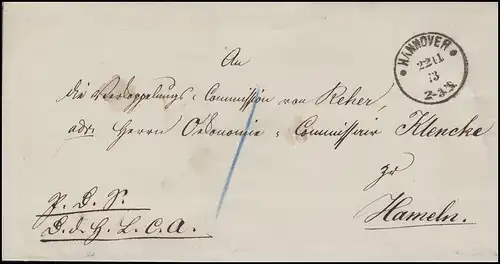 HANNOVER
22 11
73
2-3 N.
An
die Verkoppelungs-Commission von Reher,
adr. Herrn Oekonomie-Commissair Klencke
zu
Hameln.
P. D. S.
D. d. H. L. C. A.